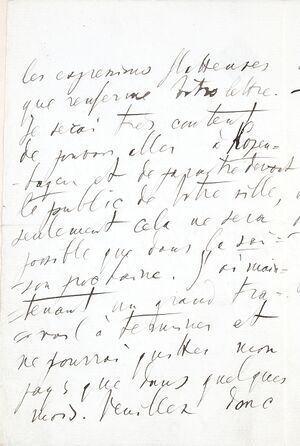 les expressions flatteuses
que renferme votre lettre.
Je serai très content
de pouvoir aller à Copen-
-hagen et de paraître devant
le public de votre ville,
seulement cela ne sera
possible que dans la sai-
-son prochaine. J'ai main-
-tenant un grand tra-
-vail à terminer et
ne pourrai quitter mon
pays que dans quelques
mois. Veuillez donc